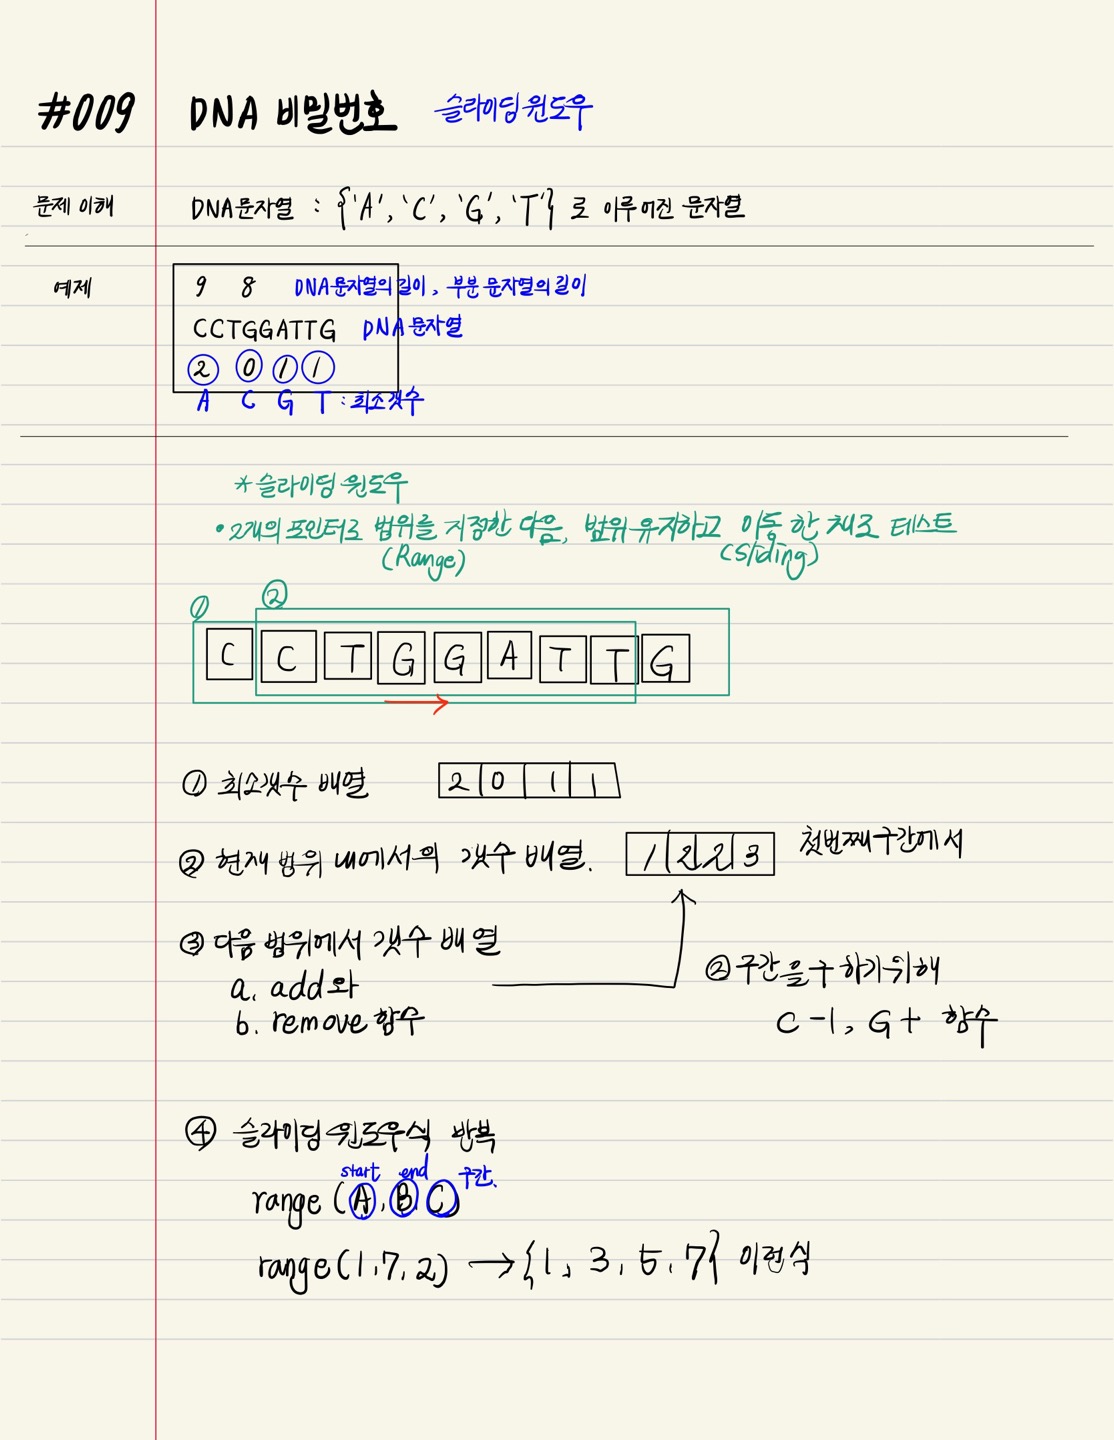 #009 DNA 비밀번호 슬라이딩 윈도우
문제 이해 DNA문자열 : {'A', 'C', 'G', 'T'} 로 이루어진 문자열
예제 9 8 DNA문자열의 길이, 부분 문자열의 길이
CCTGGATTG DNA문자열
2 0 1 1
A C G T : 최소갯수
* 슬라이딩 윈도우
• 2개의 포인터로 범위를 지정한 다음, 범위 유지하고 이동 한 채로 테스트
(Range) (Sliding)
① ②
C C T G G A T T G
① 최소갯수 배열 2 0 1 1
② 현재 범위 내에서의 갯수 배열. 1 2 2 3 첫번째 구간에서
③ 다음 범위에서 갯수 배열
a. add와
b. remove 함수
② 구간을 구하기 위해
C -1, G+ 함수
④ 슬라이딩 윈도우식 반복
start end 구간.
range (A, B C)
range(1,7,2) → {1, 3, 5, 7} 이런식